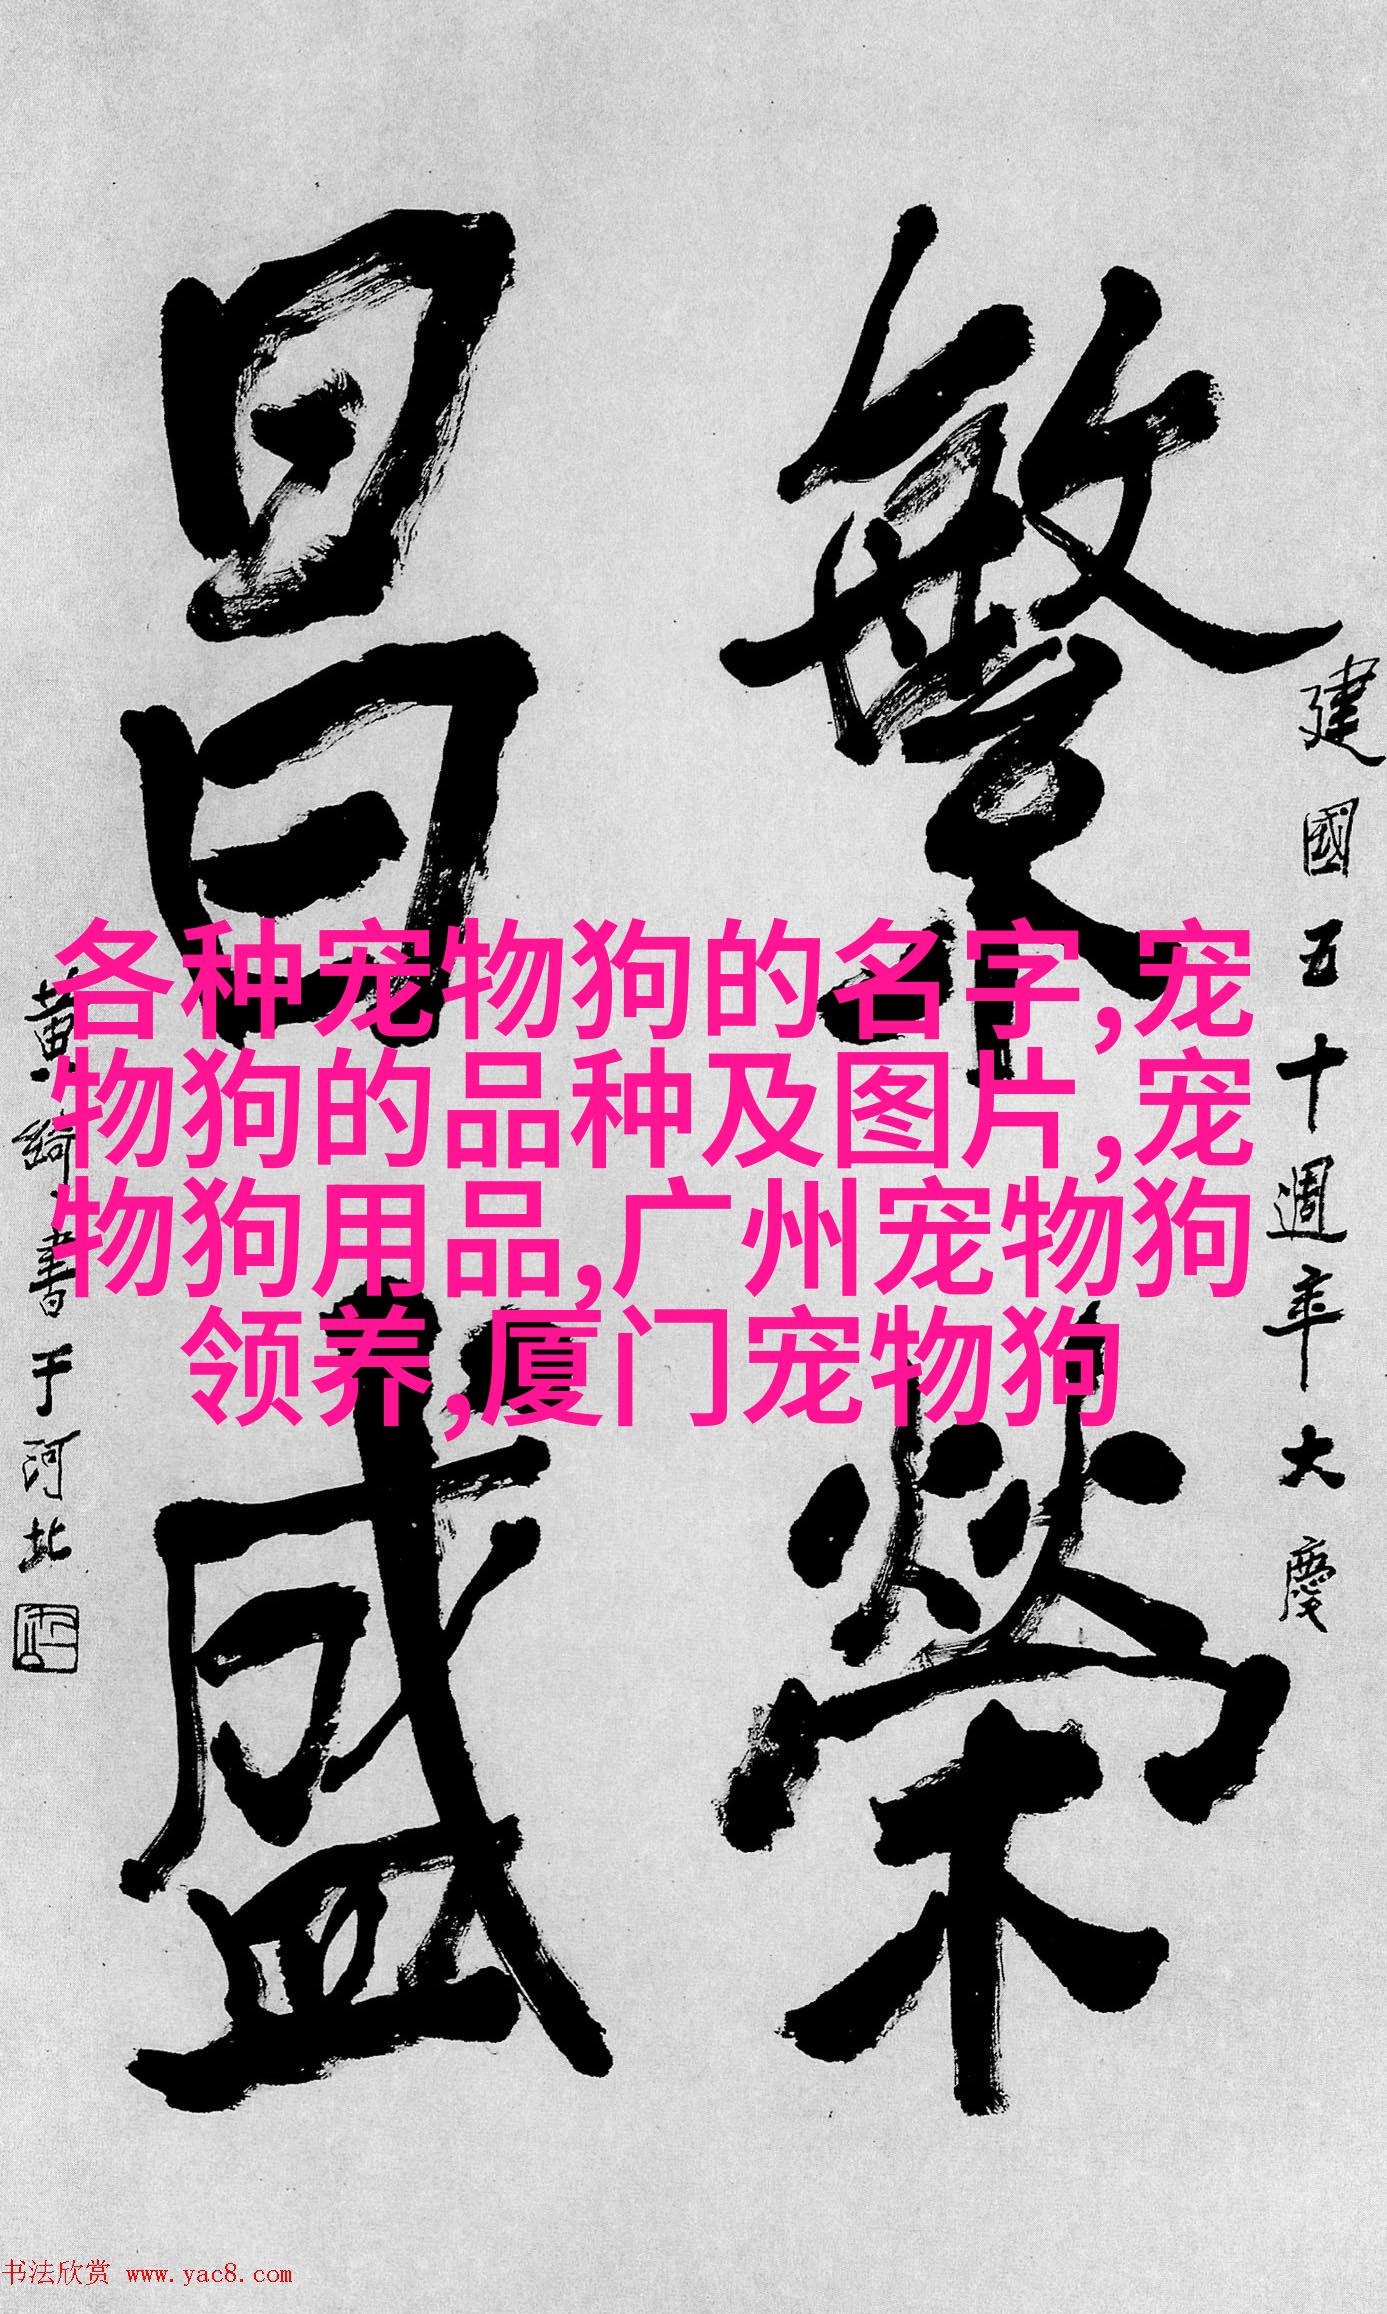 建國五十週年大慶
繁榮
昌盛
黄綺書于河北
各种宠物狗的名字,宠
物狗的品种及图片,宠
物狗用品,广州宠物狗
领养,厦门宠物狗
书法欣赏 www.yac8.com